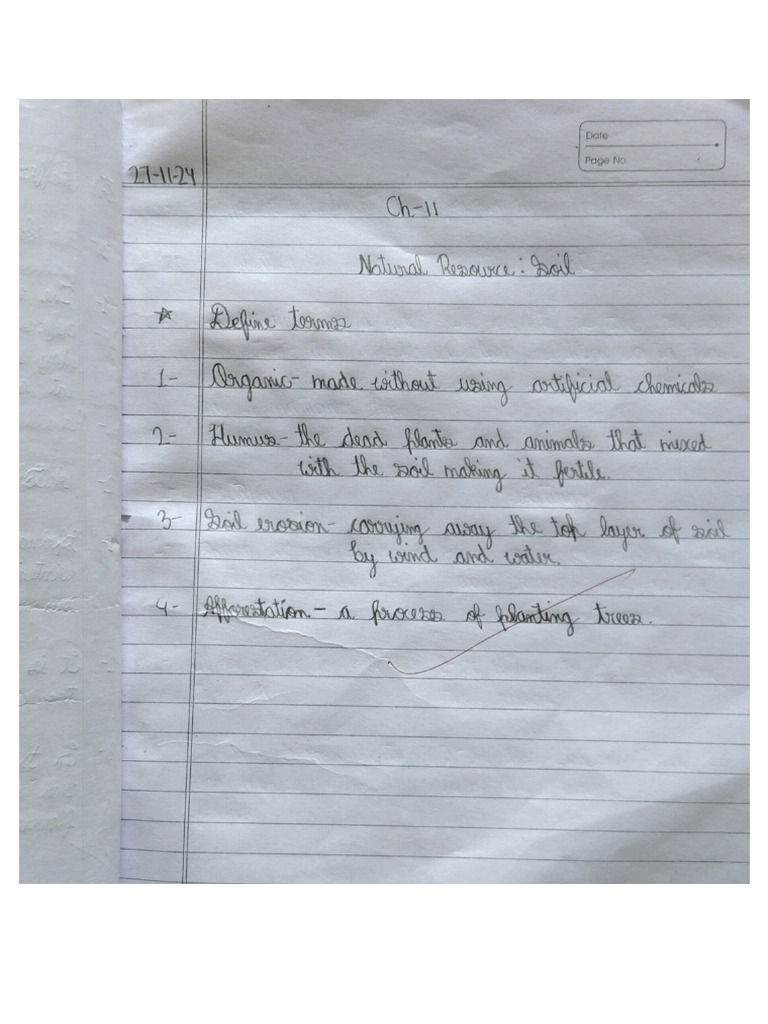 Date
Page No.
27-11-24
Ch-11
Natural Resource : Soil
☆ Define terms
1- Organic- made without using artificial chemicals
2- Humus- the dead plants and animals that mixed
with the soil making it fertile.
3- Soil erosion- carrying away the top layer of soil
by wind and water.
4- Afforestation- a process of planting trees.